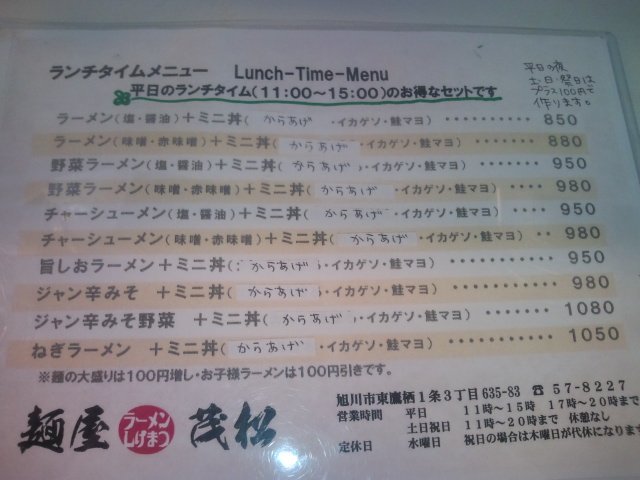 ランチタイムメニュー Lunch-Time-Menu
平日のランチタイム(11:00～15:00)のお得なセットです
平日の夜
土・日・祭日は
プラス100円で
作ります。
ラーメン(塩・醤油)＋ミニ丼(からあげ・イカゲソ・鮭マヨ)‥‥‥‥ 850
ラーメン(味噌・赤味噌)＋ミニ丼(からあげ・イカゲソ・鮭マヨ)‥‥‥ 880
野菜ラーメン(塩・醤油)＋ミニ丼(からあげ・イカゲソ・鮭マヨ)‥‥‥ 950
野菜ラーメン(味噌・赤味噌)＋ミニ丼(からあげ・イカゲソ・鮭マヨ)‥‥ 980
チャーシューメン(塩・醤油)＋ミニ丼(からあげ・イカゲソ・鮭マヨ)‥‥ 950
チャーシューメン(味噌・赤味噌)＋ミニ丼(からあげ・イカゲソ・鮭マヨ)‥ 980
旨しおラーメン＋ミニ丼(からあげ・イカゲソ・鮭マヨ)‥‥‥‥‥ 950
ジャン辛みそ ＋ミニ丼(からあげ・イカゲソ・鮭マヨ)‥‥‥‥‥ 980
ジャン辛みそ野菜 ＋ミニ丼(からあげ・イカゲソ・鮭マヨ)‥‥‥‥ 1080
ねぎラーメン ＋ミニ丼(からあげ・イカゲソ・鮭マヨ)‥‥‥‥‥ 1050
※麺の大盛りは100円増し・お子様ラーメンは100円引きです。
麺屋 ラーメンしげまつ 茂松
旭川市東鷹栖1条3丁目635-83 ☎57-8227
営業時間 平日 11時～15時 17時～20時まで
土日祝日 11時～20時まで 休憩なし
定休日 水曜日 祝日の場合は木曜日が代休になります